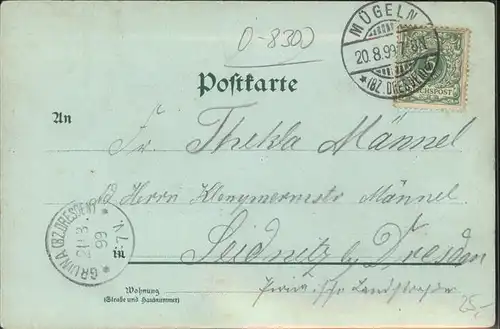 0-8300
MÜGELN
20.8.99.7-8N
*(BZ.DRESDEN)
REICHSPOST
Postkarte
An
Fr. Thekla Männel
Herrn Klempnermstr Männel
GRUNA (BZ.DRESDEN)
99
7-V.
in
Seidnitz by Dresden
Wohnung
(Straße und Hausnummer)
Pirnaische Landstrasse
25.-